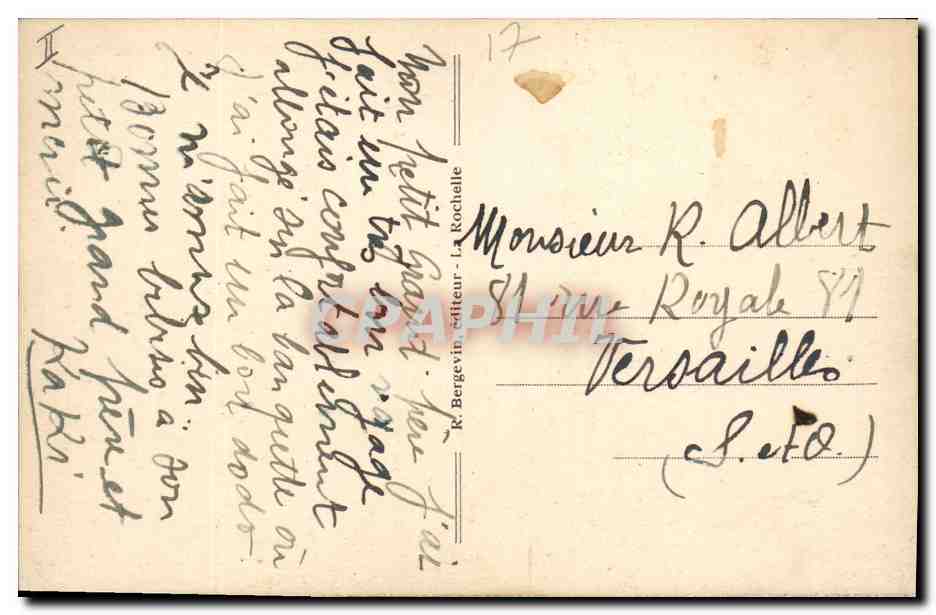 17
II
Mon petit grand-père j'ai
fait un très bon voyage
j'étais confortablement
allongé sur la banquette où
j'ai fait un bon dodo.
Je m'amuse bien.
Bonnes bises à ton
petit grand frère et
merci.
KaKi
R. Bergevin, éditeur - La Rochelle
Monsieur R. Albert
81 rue Royale 81
Versailles
(S. et O.)
CPAPHIL